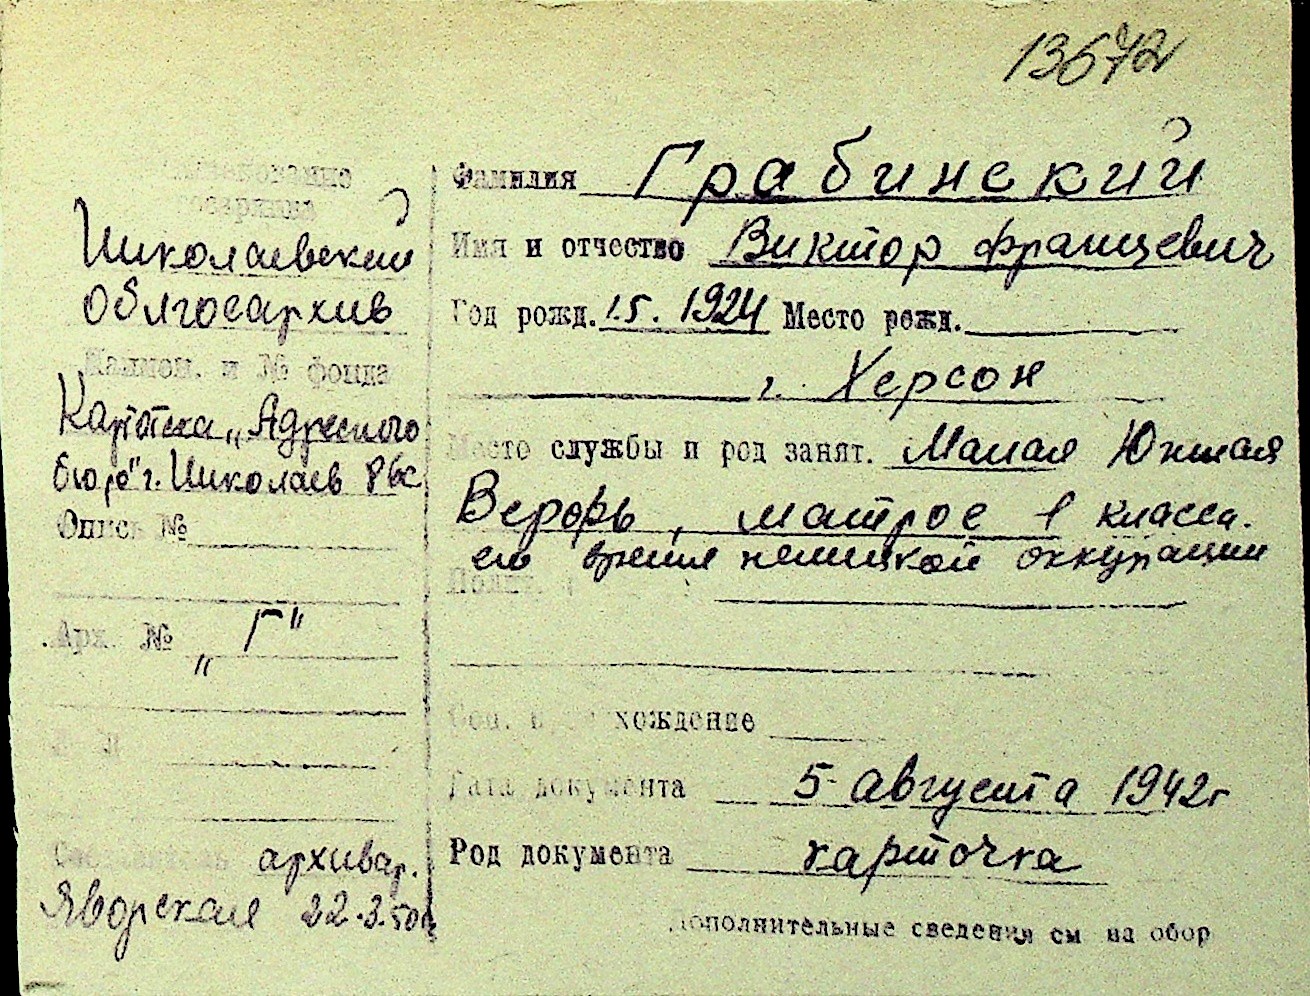 13672
Наименование
госархива
Николаевский
облгосархив
Наимен. и № фонда
Картотека „Адресного
бюро" г. Николаев
Опись №
Арх. № „Г"
Составитель архивар.
Яворская 22.3.50г
Фамилия Грабинский
Имя и отчество Виктор Францевич
Год рожд. 1.5. 1924 Место рожд.
г. Херсон
Место службы и род занят. Малая Южная
Верфь, матрос 1 класса.
во время немецкой оккупации
Соц. происхождение
Дата документа 5 августа 1942г
Род документа карточка
Дополнительные сведения см на обор